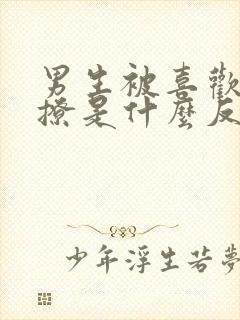 男生被喜歡
撩是什麼反
少年浮生若夢